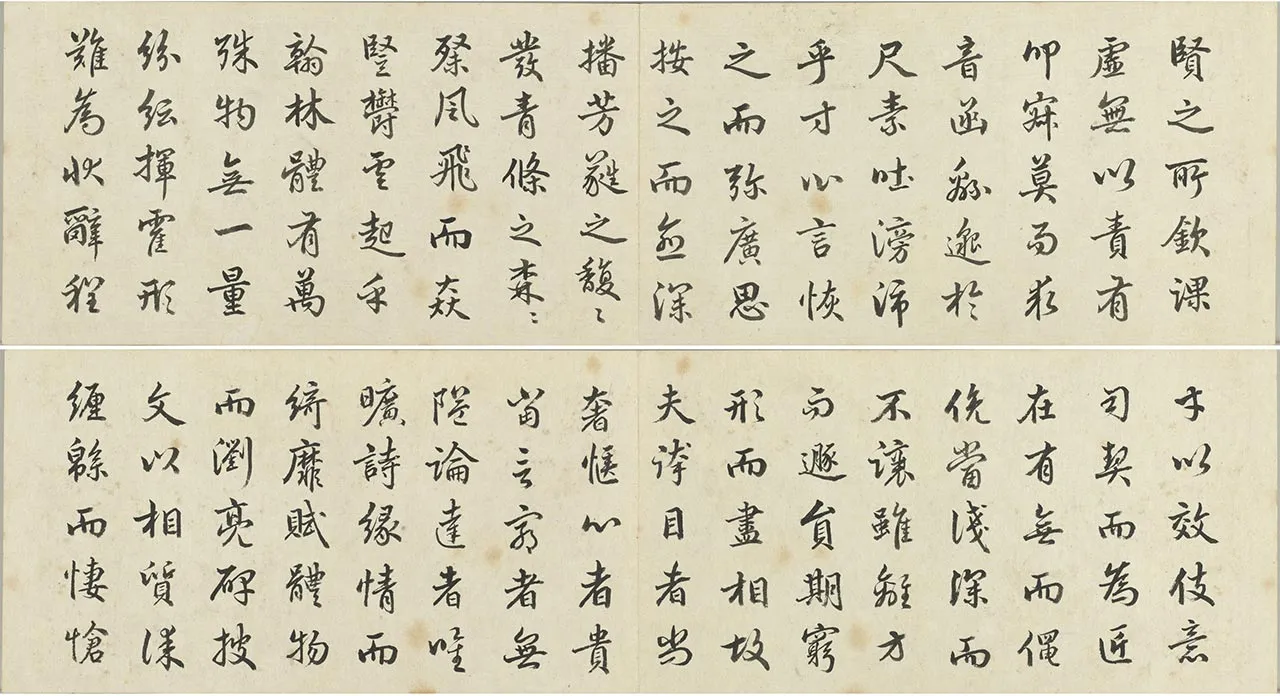 賢之所欽課
虛無以責有
叩寂莫而求
音函緜邈於
尺素吐滂沛
乎寸心言恢
之而弥廣思
按之而愈深
播芳蕤之馥〻
發青條之森〻
粲風飛而猋
豎鬱雲起乎
翰林體有萬
殊物無一量
紛紜揮霍形
難為狀辭程
才以效伎意
司契而為匠
在有無而僶
俛當淺深而
不讓雖離方
而遯員期窮
形而盡相故
夫誇目者尚
奢愜心者貴
當言窮者無
隘論達者唯
曠詩緣情而
綺靡賦體物
而瀏亮碑披
文以相質誄
纏緜而悽愴